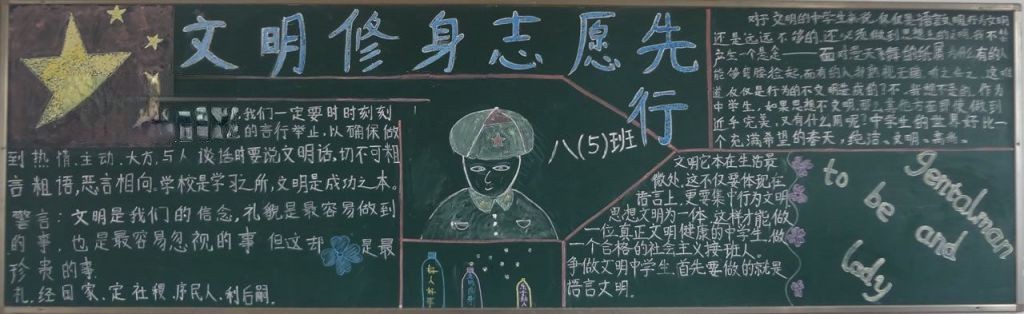 文明修身志愿先
行
八(5)班
我们一定要时时刻刻
的言行举止,以确保做
到热情、主动、大方,与人谈话时要说文明话,切不可粗
言粗语,恶言相向,学校是学习之所,文明是成功之本。
警言:文明是我们的信念,礼貌是最容易做到
的事,也是最容易忽视的事 但这却是最
珍贵的事.
礼,经国家,定社稷,序民人,利后嗣.
对于文明的中学生来说,仅仅是语言文明,行为文明
还是远远不够的,还必须做到思想上的文明
产生一个悬念——面对
能够
仅仅是行为的不文明造成的?不,我想不是的,作为
中学生,如果思想不文明,那么其他方面即使做到
近乎完美,又有什么用呢?中学生的世界好比一
个充满希望的春天,纯洁、文明
文明它本在生活最
微处,这不仅要体现在
语言上,更要集中行为文明
思想文明为一体,这样才能做
一位真正文明健康的中学生,做
一个合格的社会主义接班人。
争做文明中学生,首先要做的就是
语言文明.
gentalman
to be and
lady